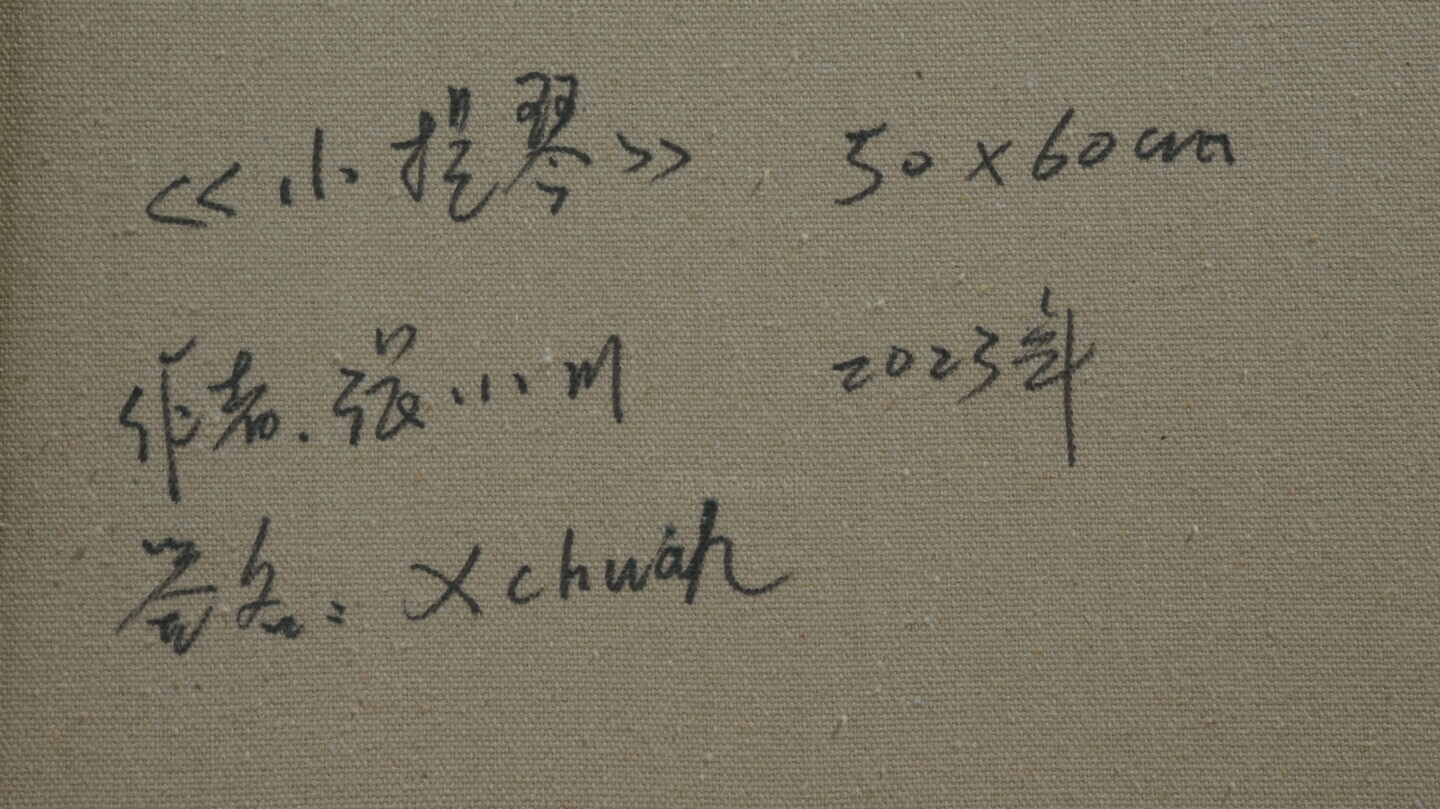 <<小提琴>> 50×60cm
作者.张小川 2023年
签名:Xchuan